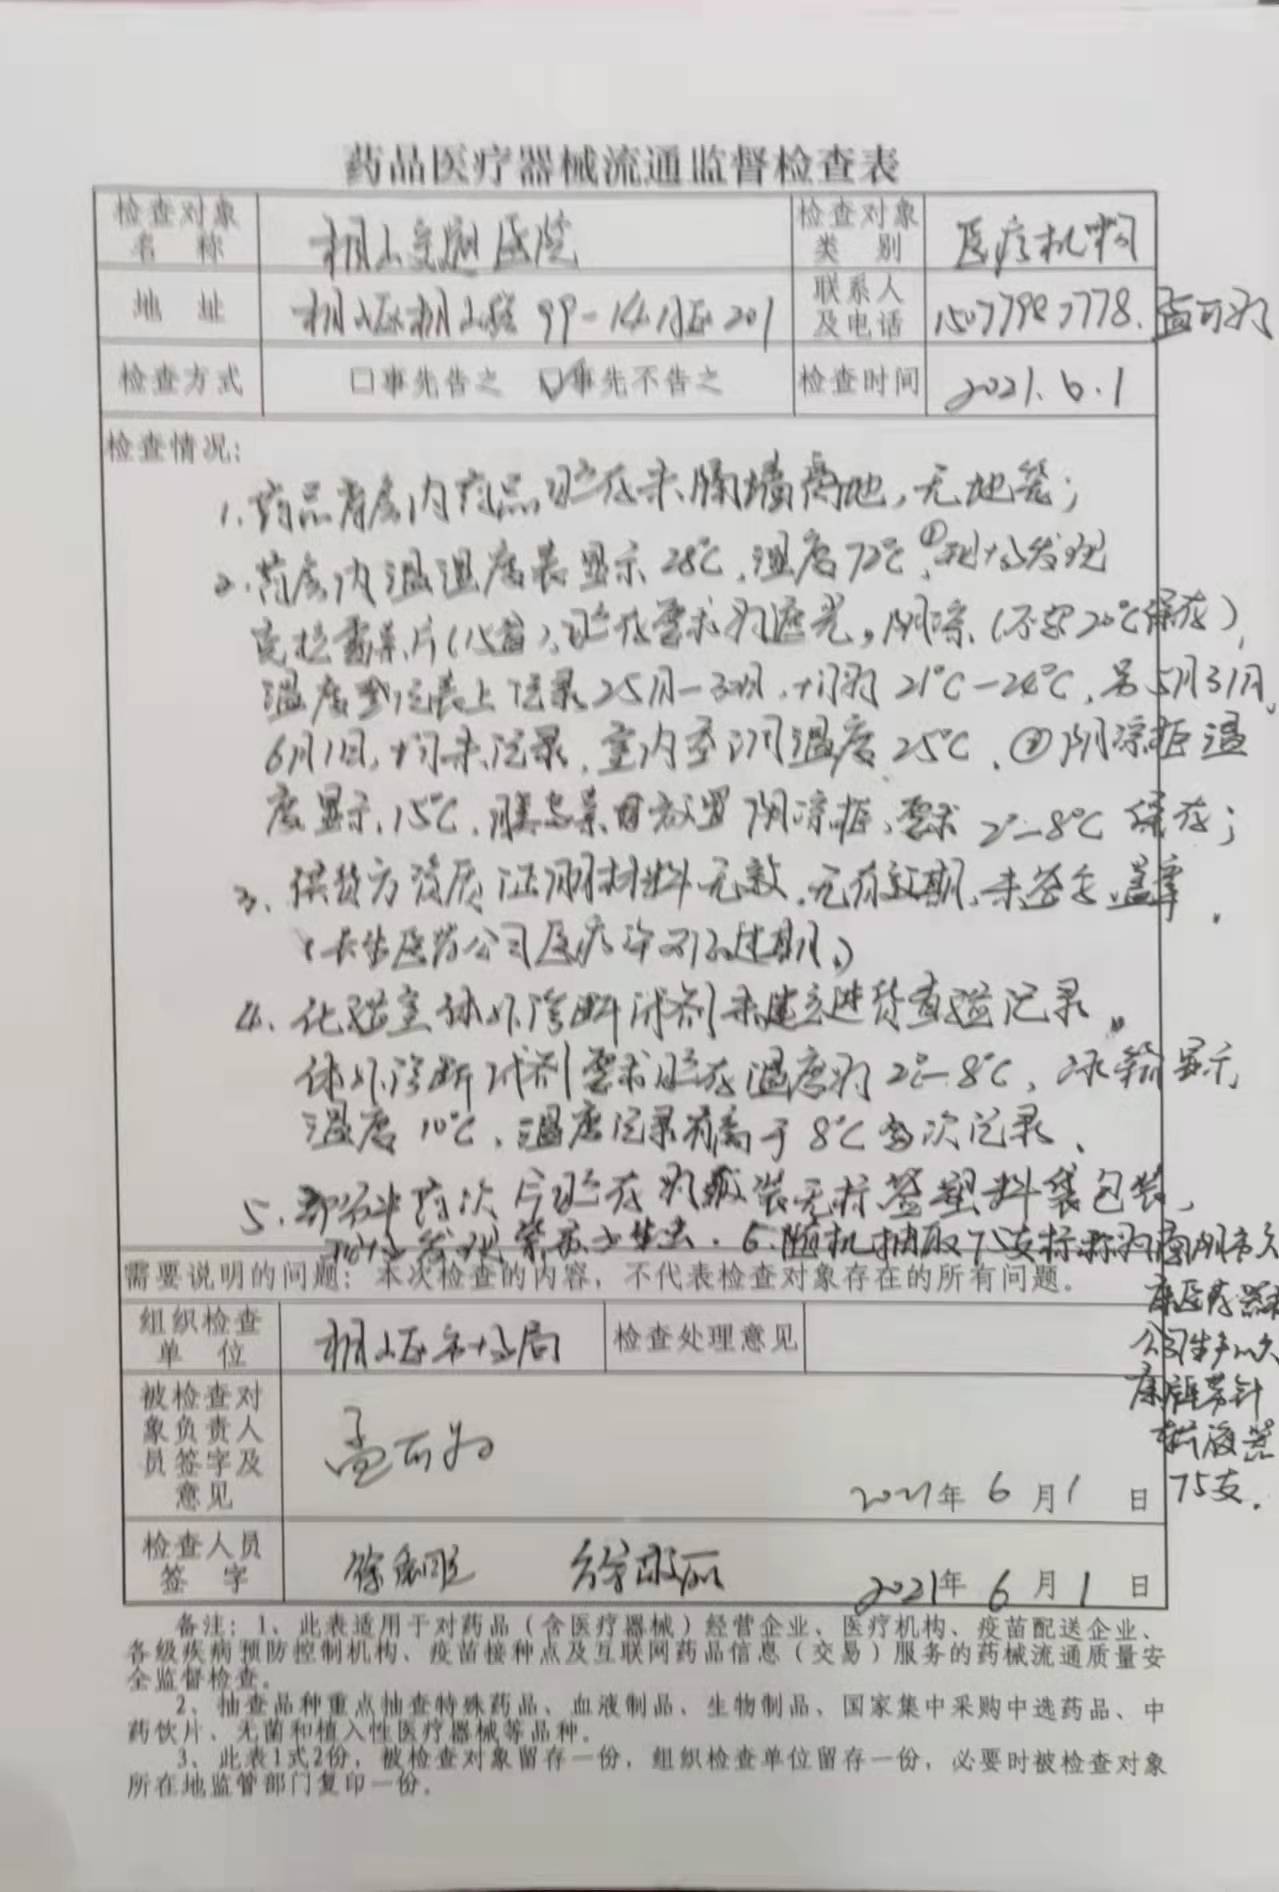 药品医疗器械流通监督检查表
检查对象名称 相山 医院 检查对象类别 医疗机构
地址 相山区相山路99-14 201 联系人及电话
检查方式 口事先告之 ☑事先不告之 检查时间 2021.6.1
检查情况:
1.药品库房内药品贮存未隔墙离地,无地笼;
2.药房内温湿度表显示28℃,湿度72℃,①现场发现
克拉霉素片(15盒),贮存要求为遮光,阴凉(不超20℃保存),
温度登记表上记录25日-30日,均为21℃-24℃,另5月31日,
6月1日,均未记录,室内空调温度25℃,②阴凉柜温
度显示,15℃,胰岛素 放置阴凉柜,要求2℃-8℃保存;
3、供货方资质证明材料无效,无有效期,未签字盖章.
(长生医药公司医疗许可证过期。)
4、化验室体外诊断试剂未建立进货查验记录。
体外诊断试剂要求贮存温度为2℃-8℃,冰箱显示
温度10℃,温度记录有高于8℃多次记录、
5、部分中药饮片贮存为 装无标签塑料袋包装,
现场发现 .6.随机抽取75支标称为 市久
康医疗器械
公司生产的久
康牌带针
输液器
75支.
需要说明的问题:本次检查的内容,不代表检查对象存在的所有问题.
组织检查单位 相山区市场局 检查处理意见
被检查对象负责人员签字及意见 孟 2021年6月1日
检查人员签字 徐 徐 2021年6月1日
备注:1、此表适用于对药品(含医疗器械)经营企业、医疗机构、疫苗配送企业、
各级疾病预防控制机构、疫苗接种点及互联网药品信息(交易)服务的药械流通质量安
全监督检查。
2、抽查品种重点抽查特殊药品、血液制品、生物制品、国家集中采购中选药品、中
药饮片、无菌和植入性医疗器械等品种.
3、此表1式2份,被检查对象留存一份,组织检查单位留存一份,必要时被检查对象
所在地监管部门复印一份.